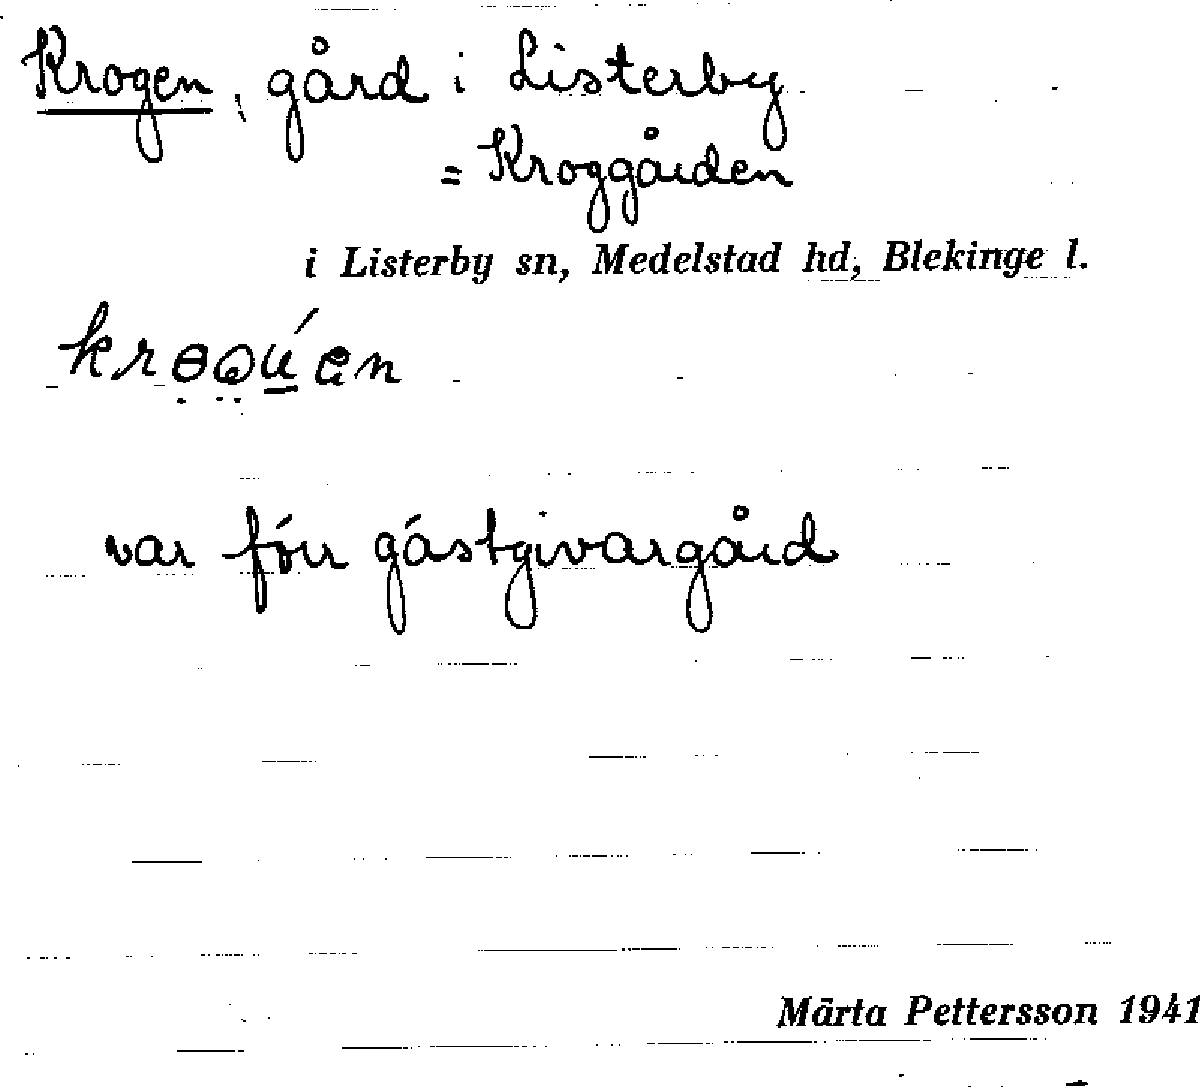 Krogen, gård i Listerby
= Kroggården
i Listerby sn, Medelstad hd, Blekinge l.
var förr gästgivargård
Märta Pettersson 1941